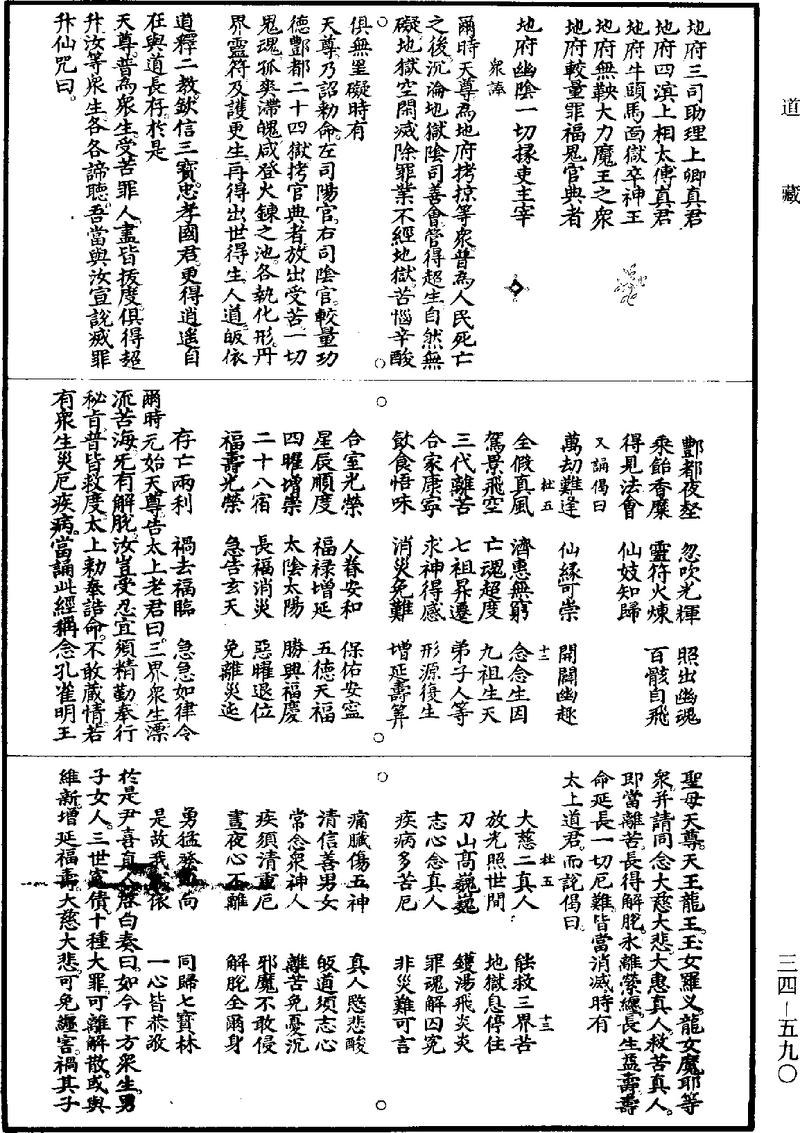 道藏
地府三司助理上卿真君
地府四溟上相太傅真君
地府牛頭馬面獄卒神王
地府無鞅大力魔王之衆
地府較量罪福鬼官典者
地府幽陰一切掾吏主宰
衆誦
爾時天尊為地府拷掠等衆普為人民死亡
之後沉淪地獄陰司善會管得超生自然無
礙地獄空閑滅除罪業不經地獄苦惱辛酸
俱無罣礙時有
天尊乃詔勑命左司陽官右司陰官較量功
德酆都二十四獄拷官典者放出受苦一切
鬼魂孤爽滯魄咸登火鍊之池各執化形丹
界靈符及護更生再得出世得生人道皈依
道釋二教欽信三寶忠孝國君更得逍遙自
在與道長存於是
天尊普為衆生受苦罪人盡皆拔度俱得超
升汝等衆生各各諦聽吾當與汝宣說滅罪
升仙咒曰
酆都夜壑　忽吹光輝　照出幽魂
乘飴香糜　靈符火煉　百骸自飛
得見法會　仙妓知歸
又誦偈曰
萬劫難逢　仙緣可崇　開闢幽趣
杜五　十二
全假真風　濟惠無窮　念念生因
駕景飛空　亡魂超度　九祖生天
三代離苦　七祖昇遷　弟子人等
合家康寧　求神得感　形源復生
飲食悟味　消災免難　增延壽筭
合室光榮　人眷安和　保佑安寍
星辰順度　福祿增延　五德天福
四曜增崇　太陰太陽　勝興福慶
二十八宿　長福消災　惡曜退位
福壽光榮　急告玄天　免離災迍
存亡兩利　禍去福臨　急急如律令
爾時元始天尊告太上老君曰三界衆生漂
流苦海旡有解脫汝豈受忍宜須精勤奉行
秘旨普皆救度太上勑奉誥命不敢蔵情若
有衆生災厄疾病當誦此經稱念孔雀明王
聖母天尊天王龍王玉女羅义龍女魔耶等
衆并請同念大慈大悲大惠真人救苦真人
即當離苦長得解脫永離縈纏長生益壽壽
命延長一切厄難皆當消滅時有
太上道君而說偈曰
杜五　十三
大慈二真人　能救三界苦
放光照世間　地獄息停住
刀山髙巍巍　鑊湯飛炎炎
志心念真人　罪魂解囚寃
疾病多苦厄　非災難可言
痛臟傷五神　真人愍悲酸
清信善男女　皈道須志心
常念衆神人　離苦免憂沉
疾須清重厄　邪魔不敢侵
晝夜心不離　解脫全爾身
勇猛向　同歸七寶林
是故我依　一心皆恭敬
於是尹喜真人啓白奏曰如今下方衆生男
子女人三世寃債十種大罪可離解散或與
維新增延福壽大慈大悲可免纏害禍其子
三四—五九〇